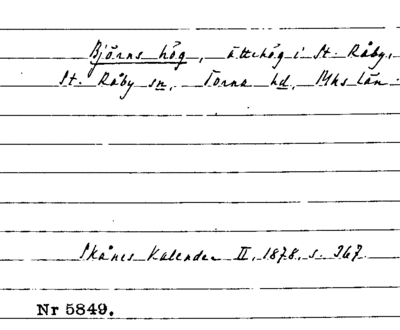 Björns hög, ättehög i St. Råby,
St. Råby sn, Torna hd, Mhs län.
Skånes Kalender II, 1878, s. 367.
Nr 5849.